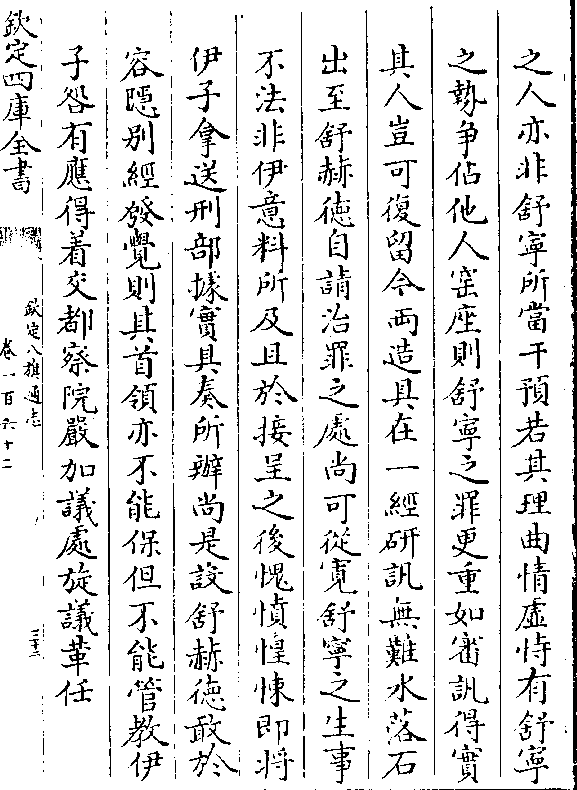 之人亦非舒寧所當干預若其理曲情虛恃有舒寧
之勢爭佔他人窑座則舒寧之罪更重如審訊得實
其人豈可復留今兩造具在一經研訊無難水落石
出至舒赫徳自請治罪之處尚可從寛舒寧之生事
不法非伊意料所及且於接呈之後愧憤惶悚即將
伊子拿送刑部據實具奏所辦尚是設舒赫徳敢於
容隠别經發覺則其首領亦不能保但不能管教伊
子咎有應得着交都察院嚴加議處旋議革任
欽定四庫全書
欽定八旗通志
卷一百六十二
三十二